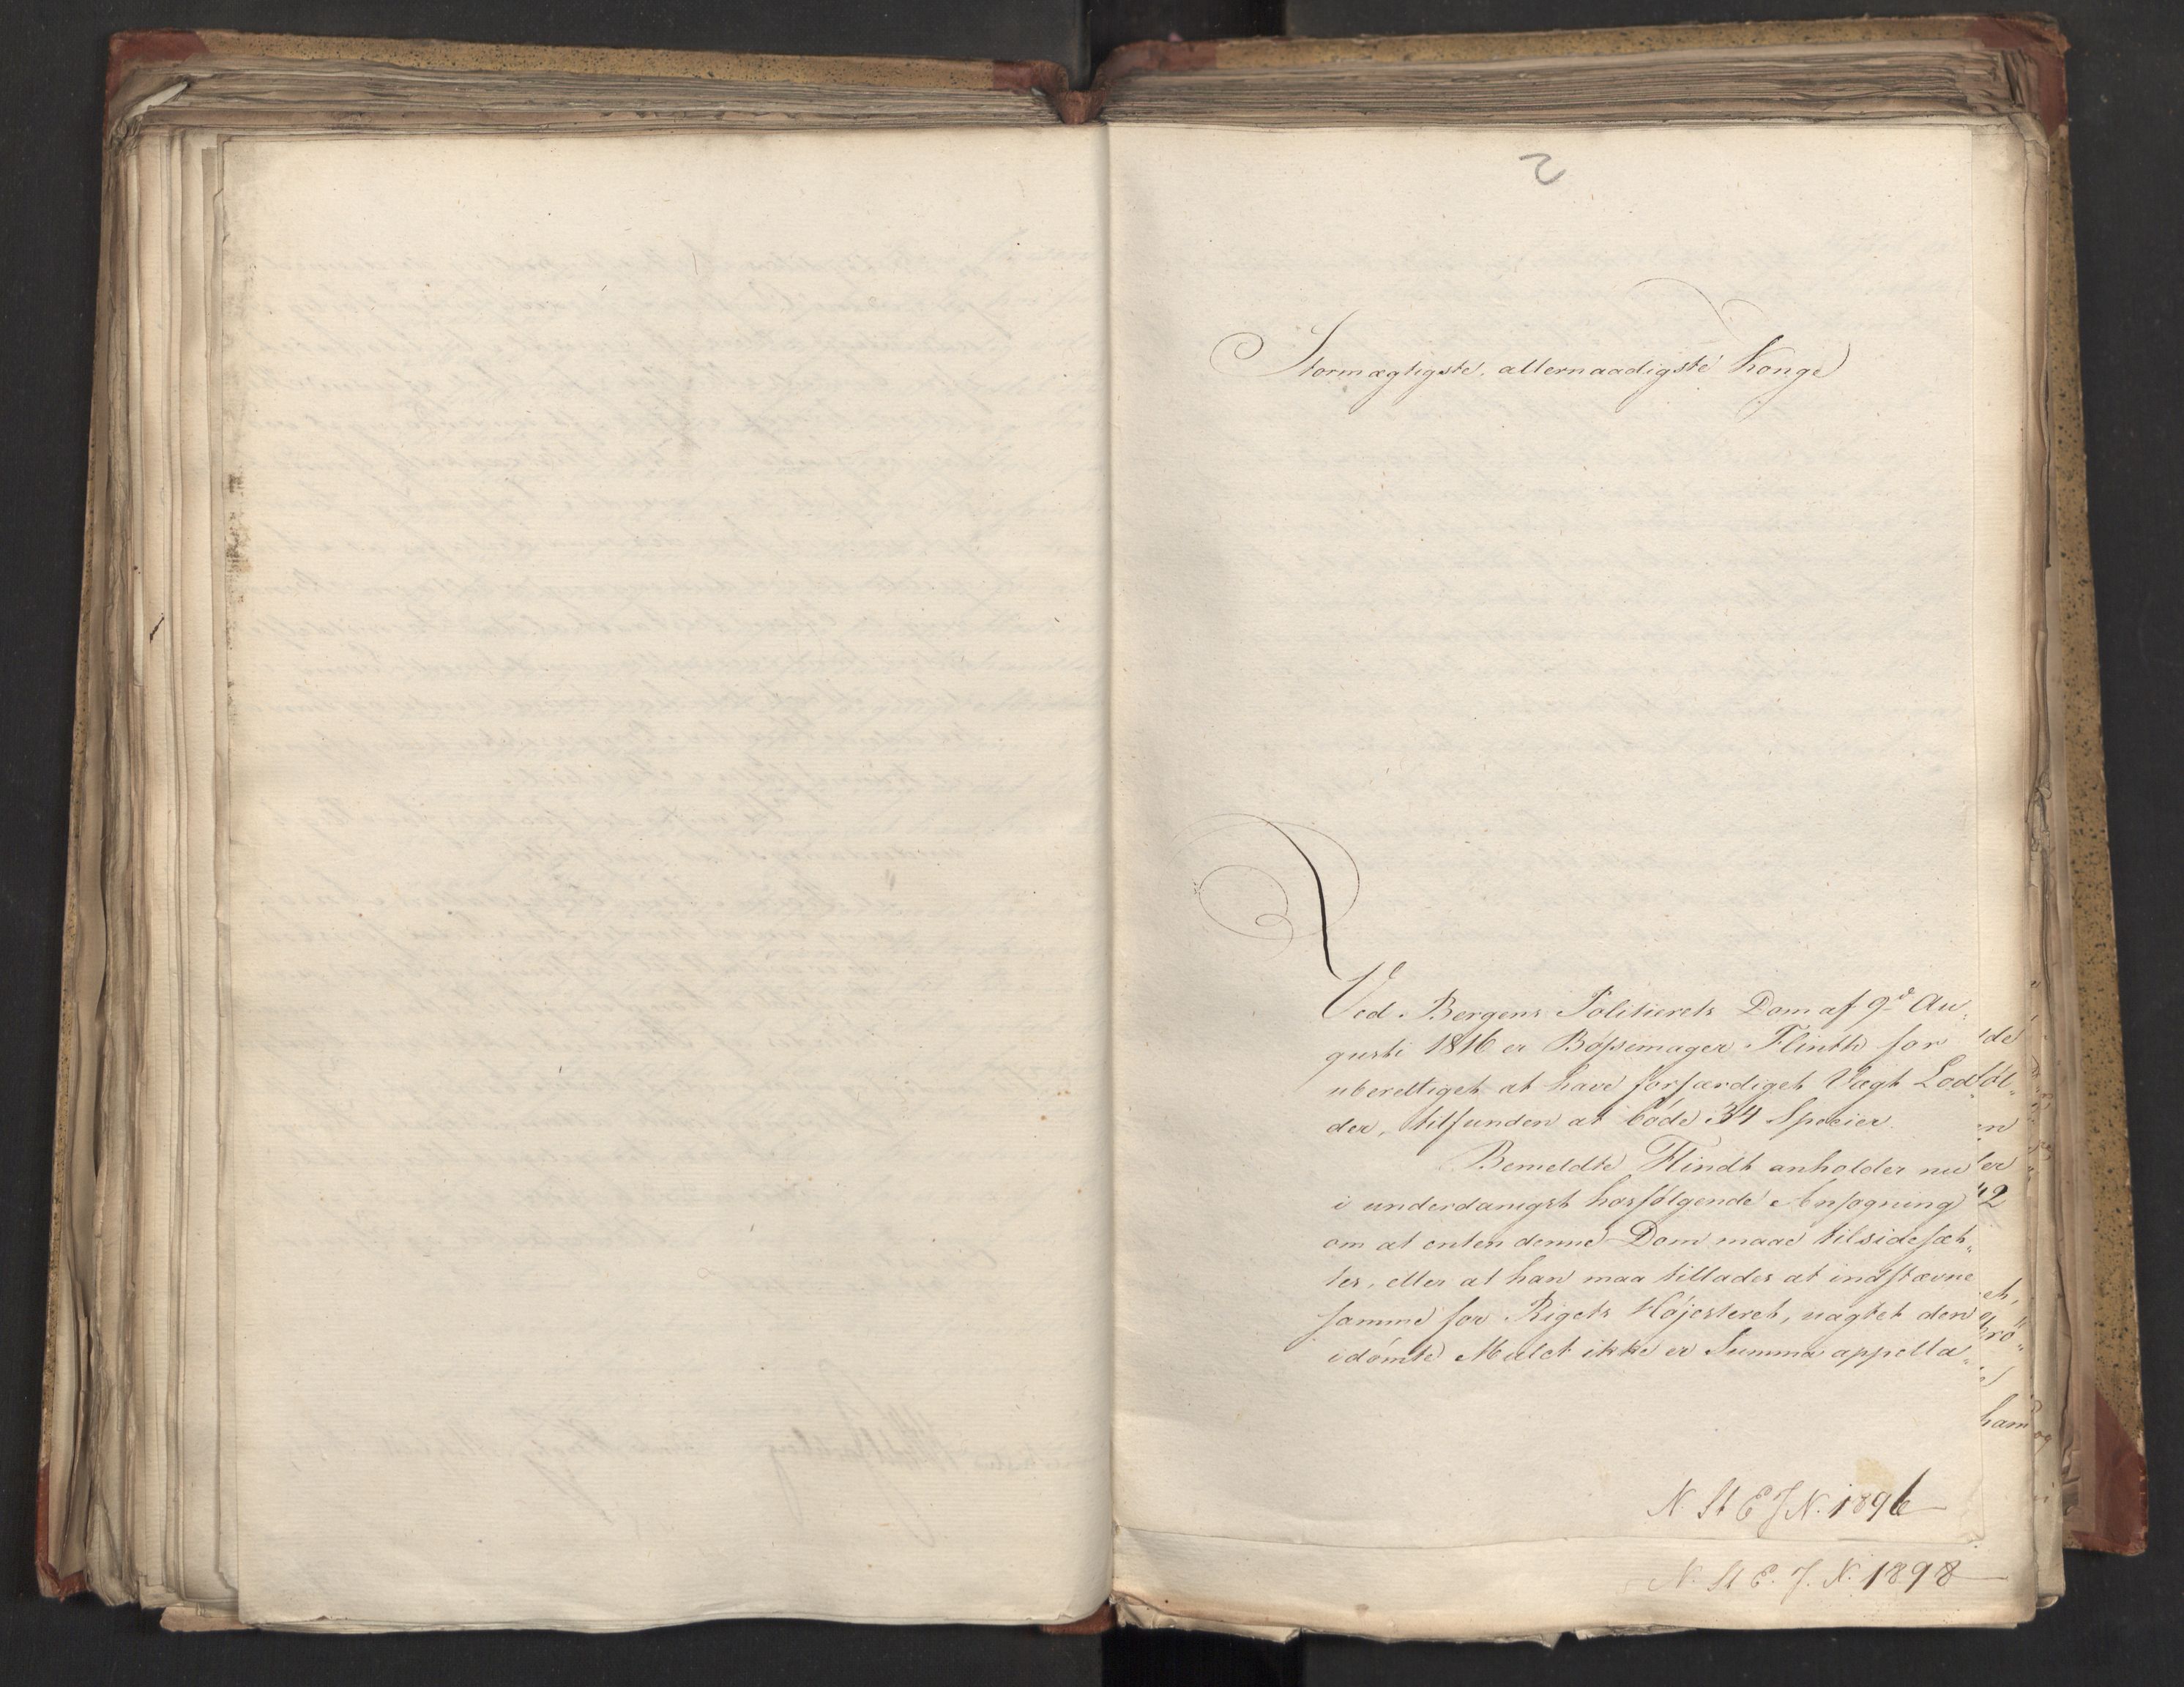 2
Stormægtigste, allernaadigste Konge
Ved Bergens Politierets Dom af 9de Au-
gusti 1816 er Bøssemager Flinth for
uberettiget at have forfærdiget Vægt Lod-
der, tilfunden at bøde 34 Specier.
Bemeldte Flindt anholder nu
i underdanigst hosfølgende Ansøgning
om at enten denne Dom maae tilsidesæt-
tes, eller at han maa tillades at indstævne
samme for Rigets Højesteret, uagtet den
idømte Mulct ikke er Summa appella-
N. St E J N. 1896
N. St E. J. N. 1898